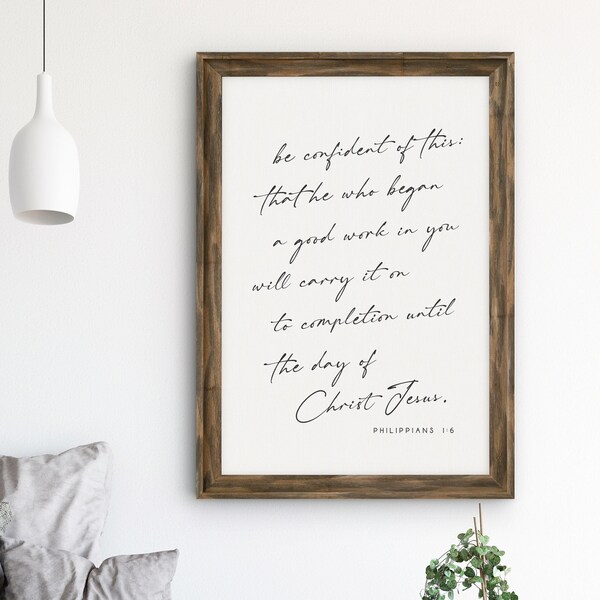 be confident of this:
that he who began
a good work in you
will carry it on
to completion until
the day of
Christ Jesus.
PHILIPPIANS 1:6